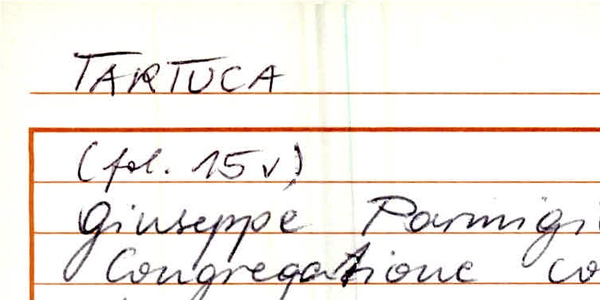 TARTUCA
(fol. 15 v)
Giuseppe Parmigi
Congregatione co